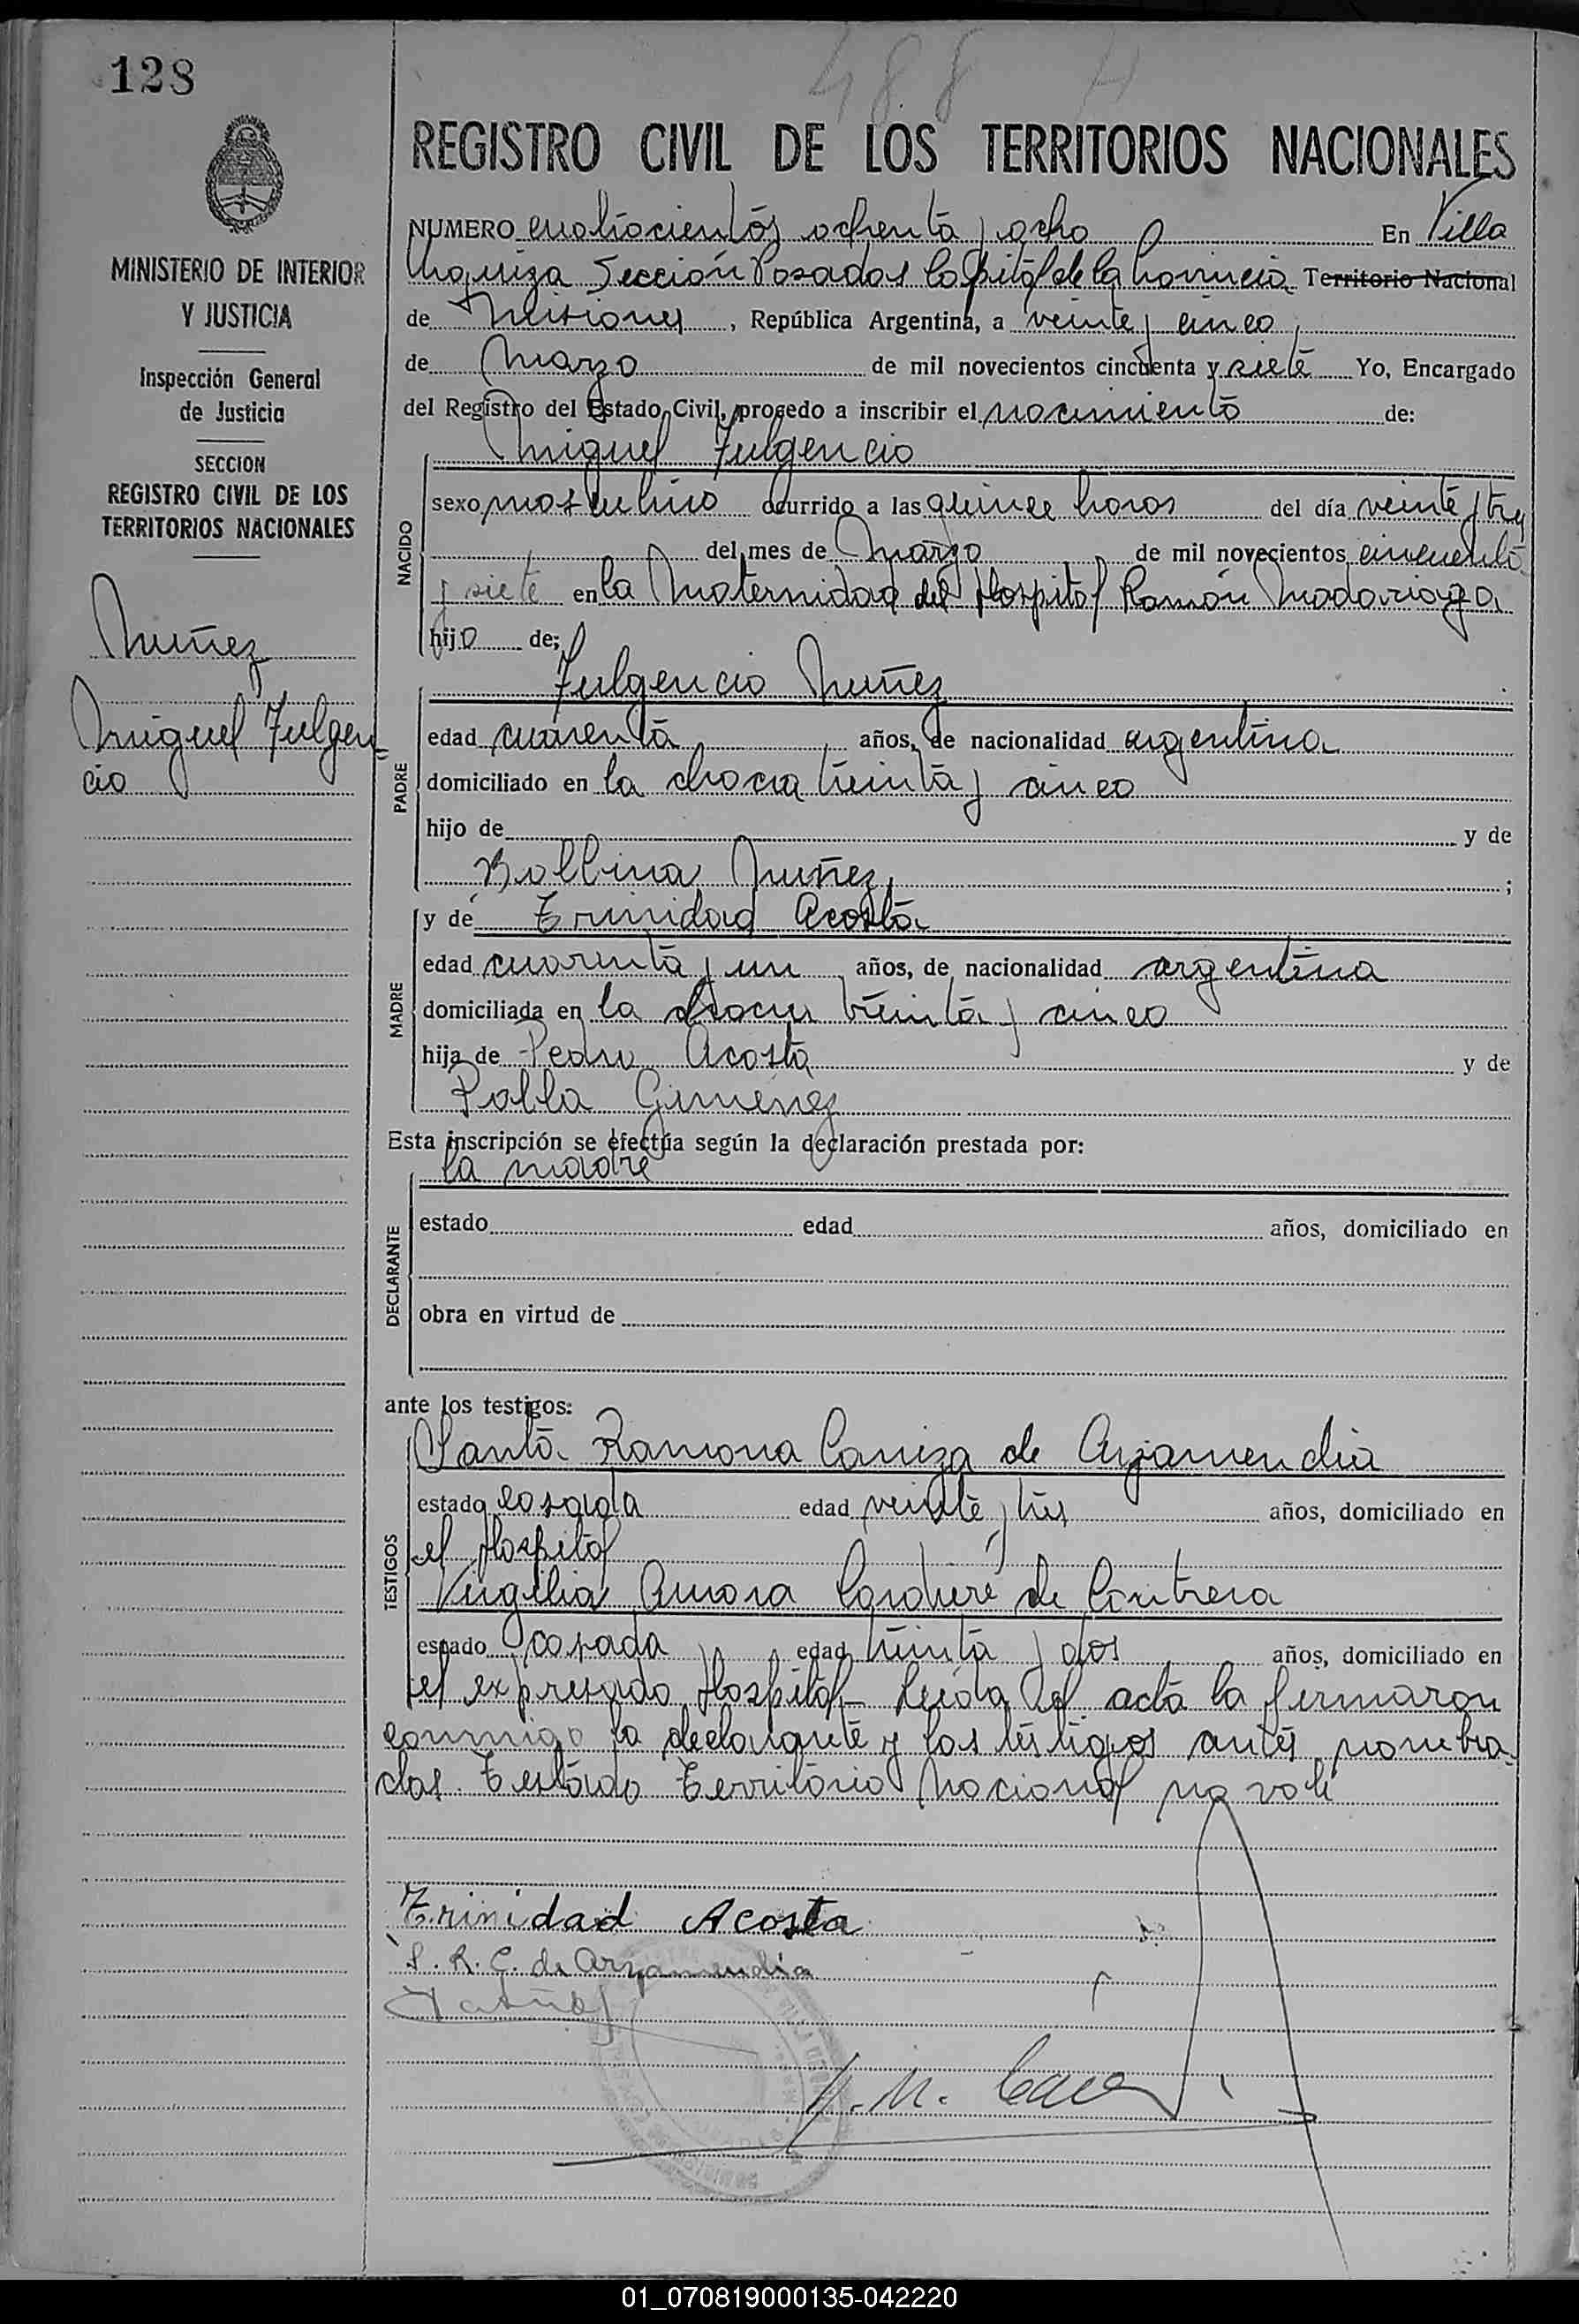 128
488 A
REGISTRO CIVIL DE LOS TERRITORIOS NACIONALES
MINISTERIO DE INTERIOR
Y JUSTICIA
Inspección General
de Justicia
SECCION
REGISTRO CIVIL DE LOS
TERRITORIOS NACIONALES
Nuñez
Miguel Fulgen
cio
NUMERO cuatrocientos ochenta y ocho En Villa
Urquiza Sección Posadas Capital de la Provincia Territorio Nacional
de Misiones, República Argentina, a veinte y cinco
de Marzo de mil novecientos cincuenta y siete Yo, Encargado
del Registro del Estado Civil, procedo a inscribir el nacimiento de:
Miguel Fulgencio
NACIDO
sexo masculino ocurrido a las quince horas del día veinte y tres
del mes de Marzo de mil novecientos cincuenta
y siete en la Maternidad del Hospital Ramón Madariaga
hijo de:
Fulgencio Nuñez
PADRE
edad cuarenta años, de nacionalidad argentina
domiciliado en la chacra treinta y cinco
hijo de y de
Balbina Nuñez;
MADRE
y de Trinidad Acosta
edad cuarenta y un años, de nacionalidad argentina
domiciliada en la chacra treinta y cinco
hija de Pedro Acosta y de
Pabla Gimenez
Esta inscripción se efectúa según la declaración prestada por:
la madre
DECLARANTE
estado edad años, domiciliado en
obra en virtud de
ante los testigos:
TESTIGOS
Santa Ramona Caniza de Arzamendia
estado casada edad veinte y tres años, domiciliado en
el Hospital
Virgilia Amora de Contrera
estado casada edad treinta y dos años, domiciliado en
el expresado Hospital – Leida el acta la firmaron
conmigo la declarante y los testigos antes nombra
dos. Testado Territorio Nacional no vale
Trinidad Acosta
S. R. C. de Arzamendia
01_070819000135-042220